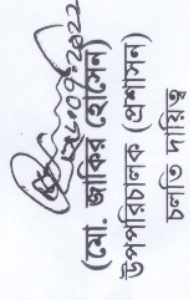 ২৮.০৭.২০২২
(মো. জাকির হোসেন)
উপপরিচালক (প্রশাসন)
চলতি দায়িত্ব